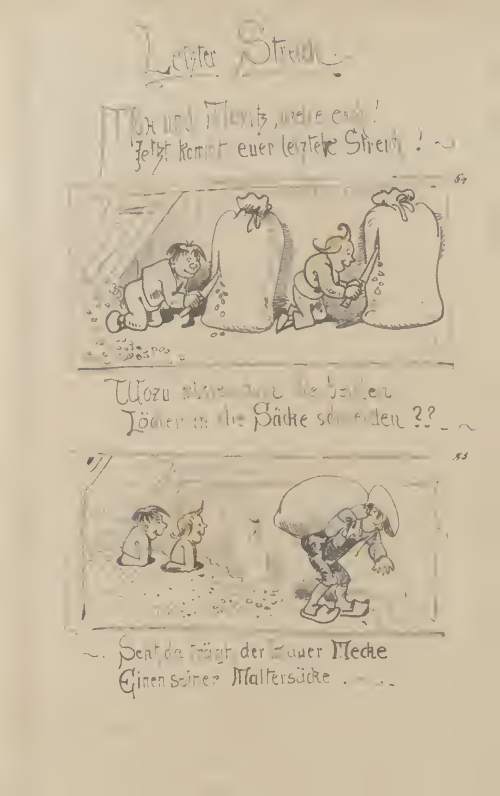 Letzter Streich.
Max und Moritz, wehe euch!
Jetzt kommt euer letzter Streich!
84
Wozu die beiden
Löcher in die Säcke schneiden??
85
Seht, da trägt der Bauer Mecke
Einen seiner Maltersäcke.